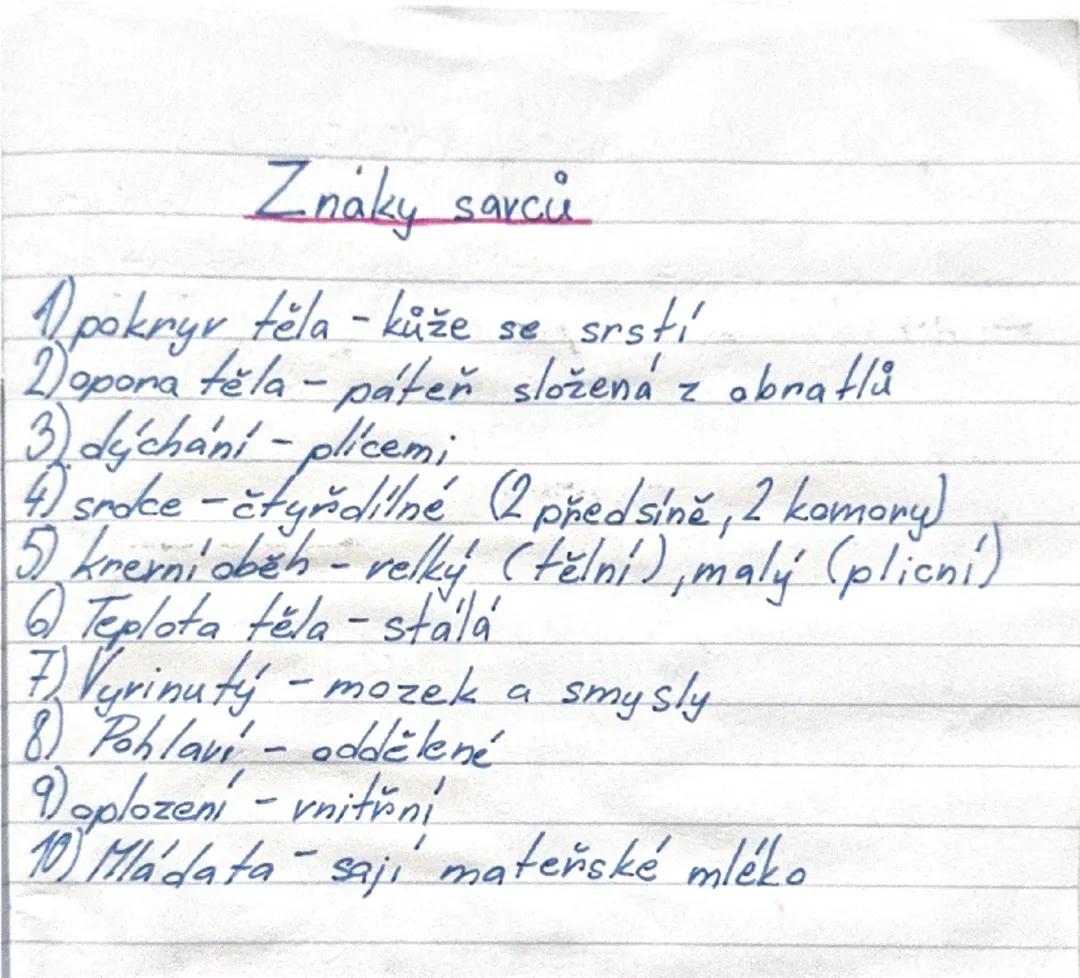 Znáky savců
1) pokryv těla - kůže se srstí
2) opora těla - páteř složená z obratlů
3) dýchání - plícemi
4) srdce - čtyřdílné (2 předsíně, 2 komory)
5) krevní oběh - velký (tělní), malý (plicní)
6) Teplota těla - stálá
7) Vyvinutý - mozek a smysly
8) Pohlaví - oddělené
9) oplození - vnitřní
10) Mláďata - sají mateřské mléko